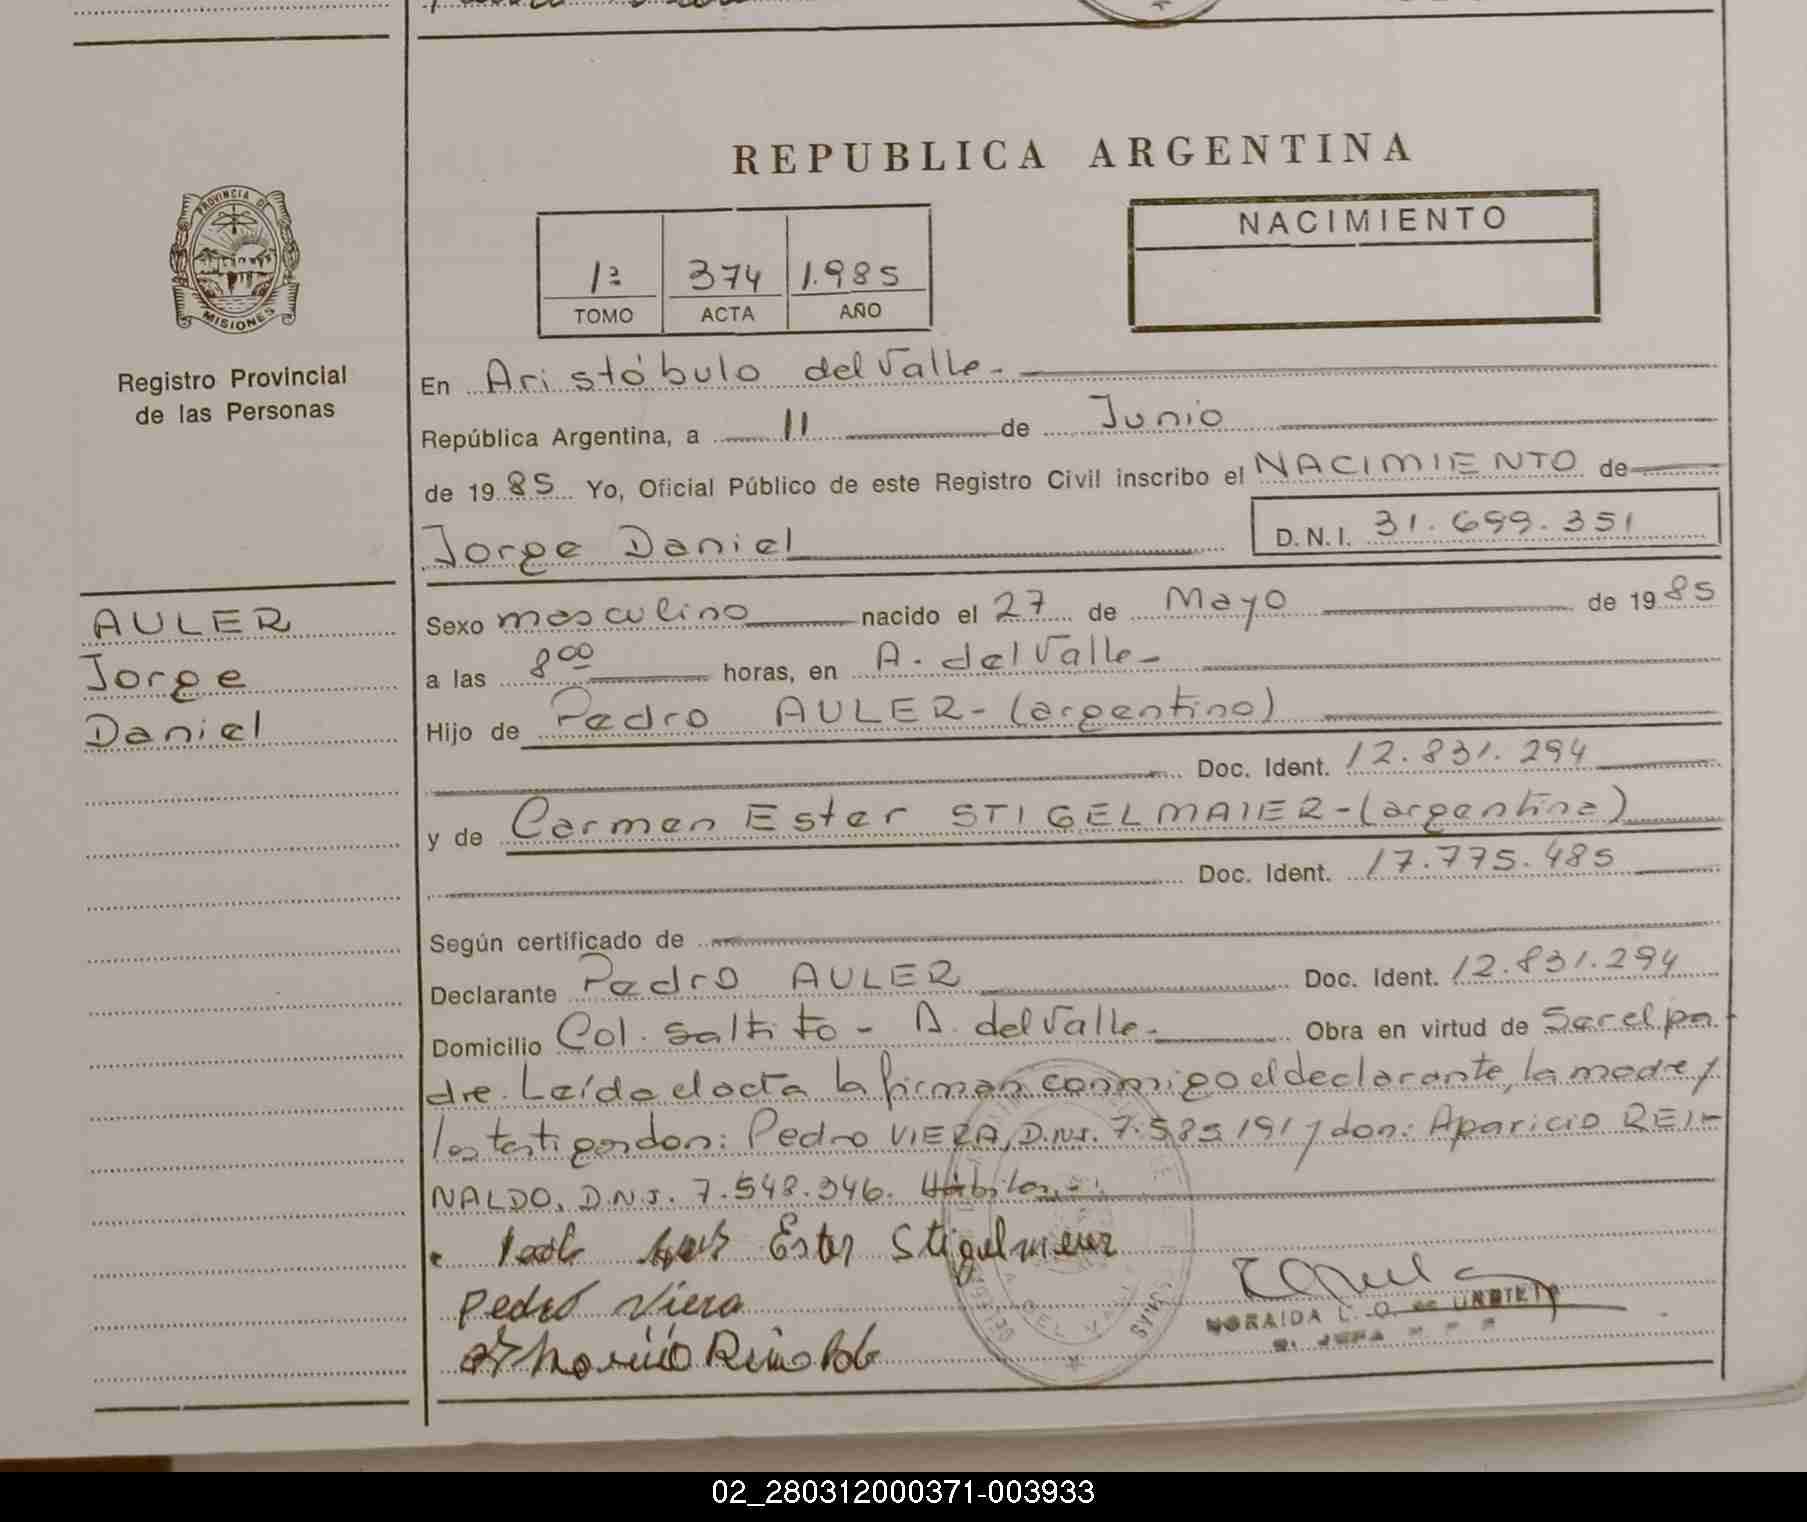 REPUBLICA ARGENTINA
PROVINCIA DE
MISIONES
Registro Provincial
de las Personas
1º 374 1.985
TOMO ACTA AÑO
NACIMIENTO
En Aristóbulo del Valle.-
República Argentina, a 11 de Junio
de 1985 Yo, Oficial Público de este Registro Civil inscribo el NACIMIENTO de
Jorge Daniel D.N.I. 31.699.351
AULER
Jorge
Daniel
Sexo masculino nacido el 27 de Mayo de 1985
a las 8 00 horas, en A. del Valle-
Hijo de Pedro AULER-(argentino)
Doc. Ident. 12.831.294
y de Carmen Ester STIGELMAIER-(argentina)
Doc. Ident. 17.775.485
Según certificado de
Declarante Pedro AULER Doc. Ident. 12.831.294
Domicilio Col. Saltito - A. del Valle.- Obra en virtud de Ser el pa-
dre. Leída el acta la firman conmigo el declarante, la madre y
los testigos don: Pedro VIERA, D.N.I. 7.585191 y don: Aparicio REI-
NALDO, D.N.I. 7.548.346. Hábiles.-
Ester Stigelmeier
Pedro Viera
NORAIDA L. O. de
DEL VALLE
02_280312000371-003933